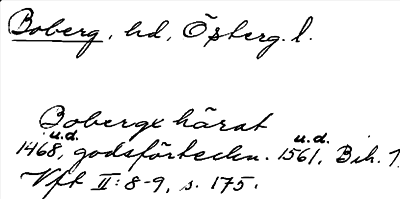 Boberg, hd, Österg. l.
Bobergx härat
u.d. u.d.
1468, godsförteckn. 1561, Bih. 1,
Vft II: 8-9, s. 175.